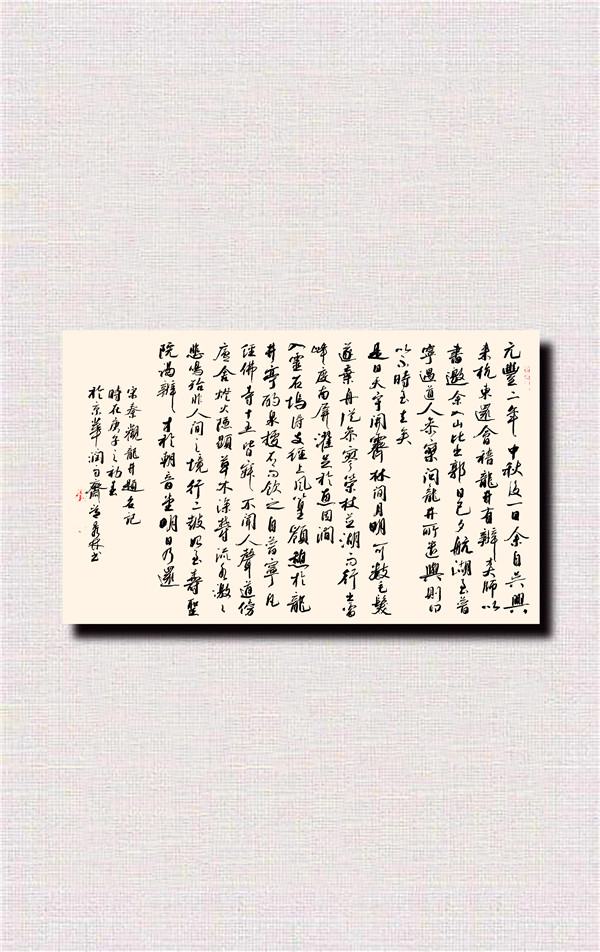 元豐二年中秋後一日余自吳興
來杭東還會稽龍井有辯才師以
書邀余入山比出郭日已夕航湖至普
寧遇道人參寥問龍井所遣輿則曰
以不時至去矣
是日天宇開霽林間月明可數毛髮
遂棄舟從參寥策杖並湖而行出雷
峰度南屏濯足於惠因澗
入靈石塢得支徑上風篁嶺憩於龍
井亭酌泉據石而飲之自普寧凡
經佛寺十五皆寂不聞人聲道傍
廬舍燈火隱顯草木深鬱流水激激
悲鳴殆非人間之境行二鼓始至壽聖
院謁辯才於朝音堂明日乃還
宋秦觀龍井題名記
時在庚子之初春
於京華潤白齋